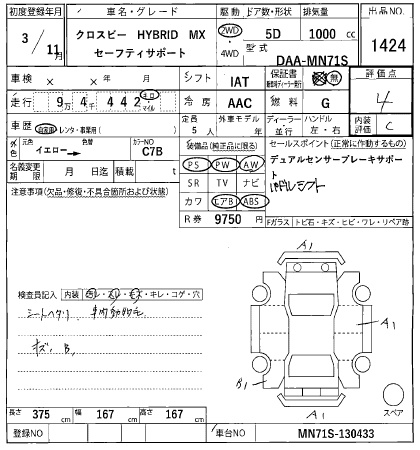 初度登録年月 車名・グレード 駆動 ドア数・形状 排気量 出品NO.
3/11月 クロスビー HYBRID MX セーフティサポート 2WD ・ 4WD 5D 1000 cc 1424
型式 DAA-MN71S
車検 × × シフト IAT 保証書 有 無 評価点 4
走行 9万 4千 442 キロ・マイル 冷房 AAC 燃料 G 内装評価 C
車歴 自家用・レンタ・事業用( ) 定員 5人 外車モデル 年 ディーラー・並行 ハンドル 左・右
外色 元色 イエロー → 色替 カラーNO C7B 装備品(純正品に限る) セールスポイント(正常に作動するもの)
名義変更期限 月 日迄 積載 t PS PW AW デュアルセンサーブレーキサポート
注意事項(欠品・修復・不具合箇所および状態) SR TV ナビ パドルシフト
カワ エアB ABS
R券 9750円 Fガラス トビ石・キズ・ヒビ・ワレ・リペア跡
A1
検査員記入 内装 ヨゴレ・スレ・キズ・キレ・コゲ・穴
シートヘタリ
キズ、B、
A1
B1
A1 スペア
長さ 375 cm 幅 167 cm 高さ 167 cm
登録NO 車台NO MN71S-130433